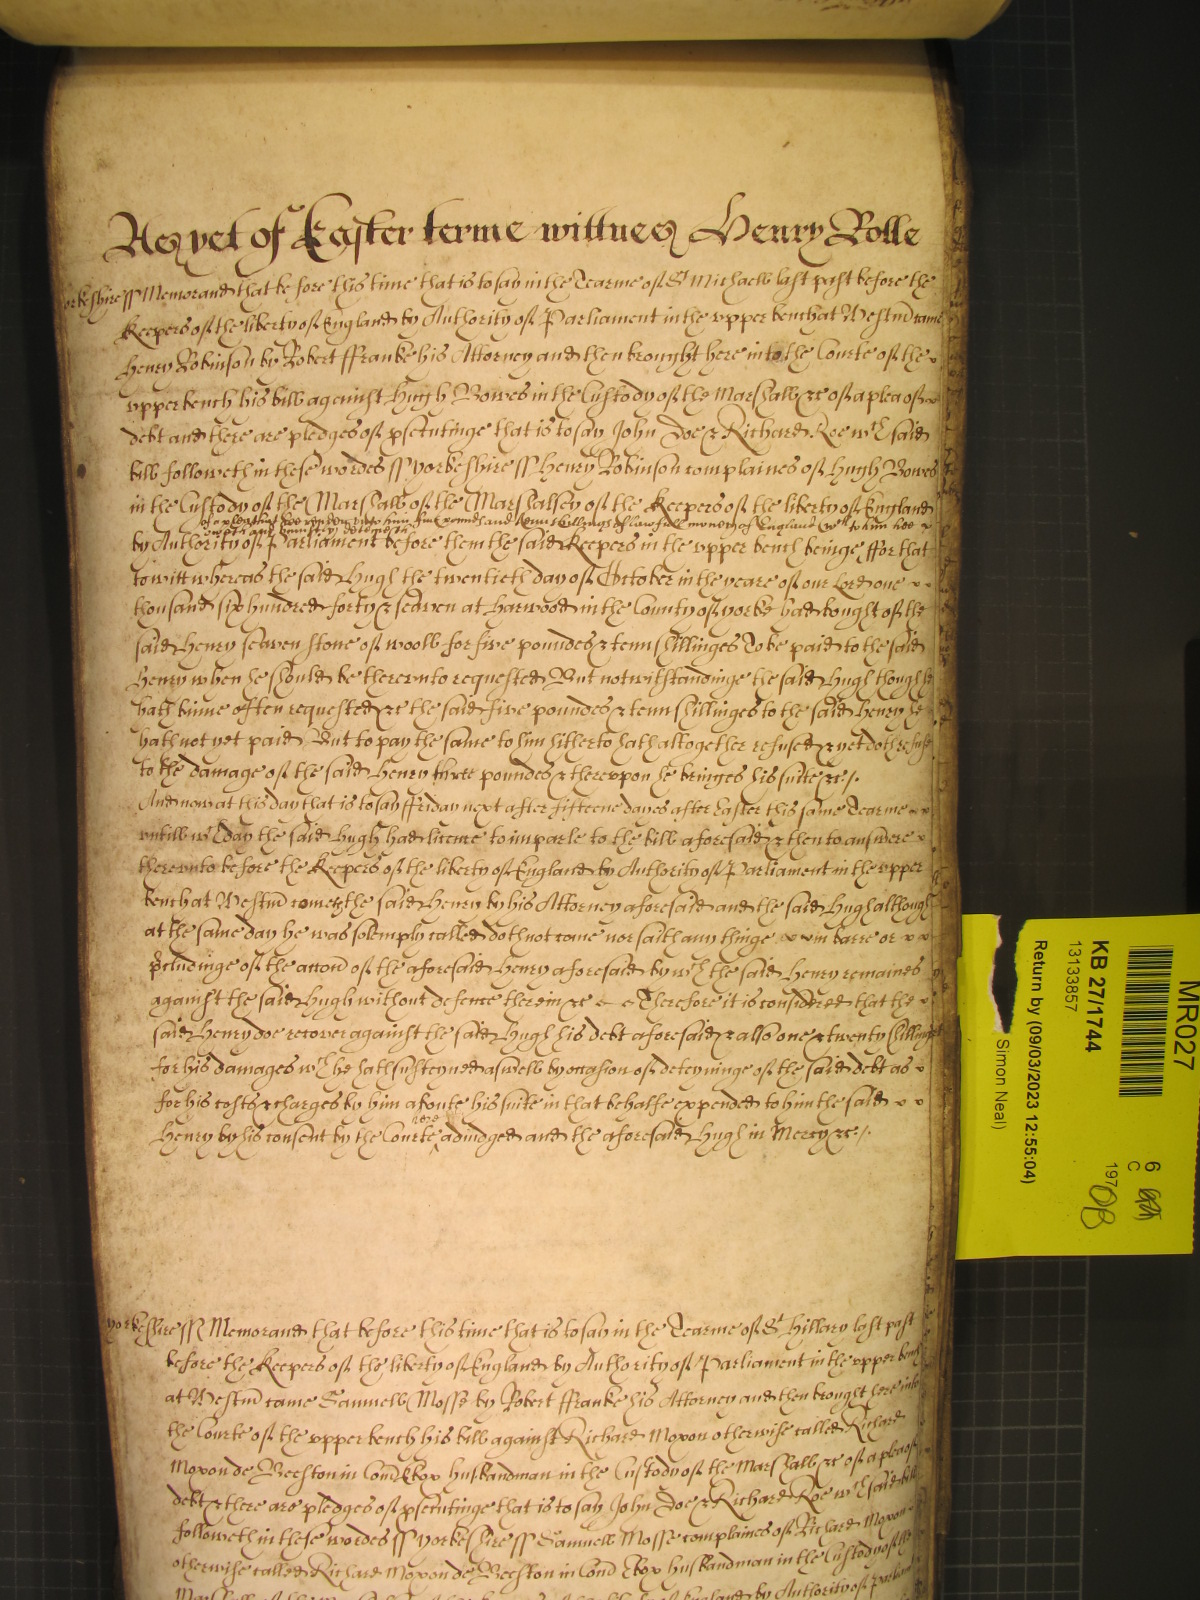 As yet of Easter terme wittnes Henry Rolle
orkeshire ss Memorand that before this time that is to say in the Tearme of St Michaell last past before the
Keepers of the liberty of England by Authority of Parliament in the vpper bench at Westm came
Henry Robinson by Robert ffranke his Attorney and then brought here into the Courte of the
vpper bench his bill against Hugh Bowes in the Custody of the Marshall &c of a plea of
debt and there are pledges of psecutinge that is to say John Doe & Richard Roe wch said
bill followeth in these wordes ss yorkeshire ss Henry Robinson complaines of Hugh Bowes
in the Custody of the Marshall of the Marshalsey of the Keepers of the liberty of England
of a plea that hee render vnto him five pounds and tenn shillings of lawfull money of England wch to him hee
oweth and vniustly deteynes
by Authority of Parliament before them the said Keepers in the vpper bench beinge ffor that
to witt whereas the said Hugh the twentieth day of October in the yeare of our Lord one
thousand six hundred forty & seaven at Harwood in the County of yorke had bought of the
said Henry seaven stone of wooll for five poundes & tenn shillinges To be paid to the said
Henry when he should be therevnto requested But notwithstandinge the said Hugh though he
hath binne often requested &c the said five poundes & tenn shillinges to the said Henry he
hath not yet paid But to pay the same to him hitherto hath altogether refused & yet doth refuse
to the damage of the said Henry three poundes & therevpon he bringes his suite &c /.
And now at this day that is to say ffriday next after fifteene dayes after Easter this same Tearme
vntill wch day the said Hugh had licence to imparle to the bill aforesaid & then to answere
therevnto before the Keepers of the liberty of England by Authority of Parliament in the vpper
bench at Westm cometh the said Henry by his Attorney aforesaid and the said Hugh although
at the same day he was solemply called doth not come nor saith any thinge in barre or
pcludinge of the accon of the aforesaid Henry aforesaid by wch the said Henry remaines
against the said Hugh without defence therein &c Therefore it is considered that the
said Henry doe recover against the said Hugh his debt aforesaid & allso one & twenty shillinges
for his damages wch he hath susteyned aswell by occasion of deteyninge of the said debt as
for his costs & charges by him aboute his suite in that behalfe expended to him the said
Henry by his consent by the Courte here adiudged and the aforesaid Hugh in Mercy &c /.
yorkeshire ss Memorand that before this time that is to say in the Tearme of St Hillary last past
before the Keepers of the liberty of England by Authority of Parliament in the vpper bench
at Westm came Samuell Mosse by Robert ffranke his Attorney and then brought here into
the Courte of the vpper bench his bill against Richard Moxon otherwise called Richard
Moxon de Beeston in Com Ebor husbandman in the Custody of the Marshall &c of a plea of
debt & there are pledges of psecutinge that is to say John Doe & Richard Roe wch said bill
followeth in these wordes ss yorkeshire ss Samuell Mosse complaines of Richard Moxon
otherwise called Richard Moxon de Beeston in Com Ebor husbandman in the Custody of the
England by Authority of Parliam
MR027
KB 27/1744
13133857
Return by (09/03/2023 12:55:04)
Simon Neal)
6
C
197